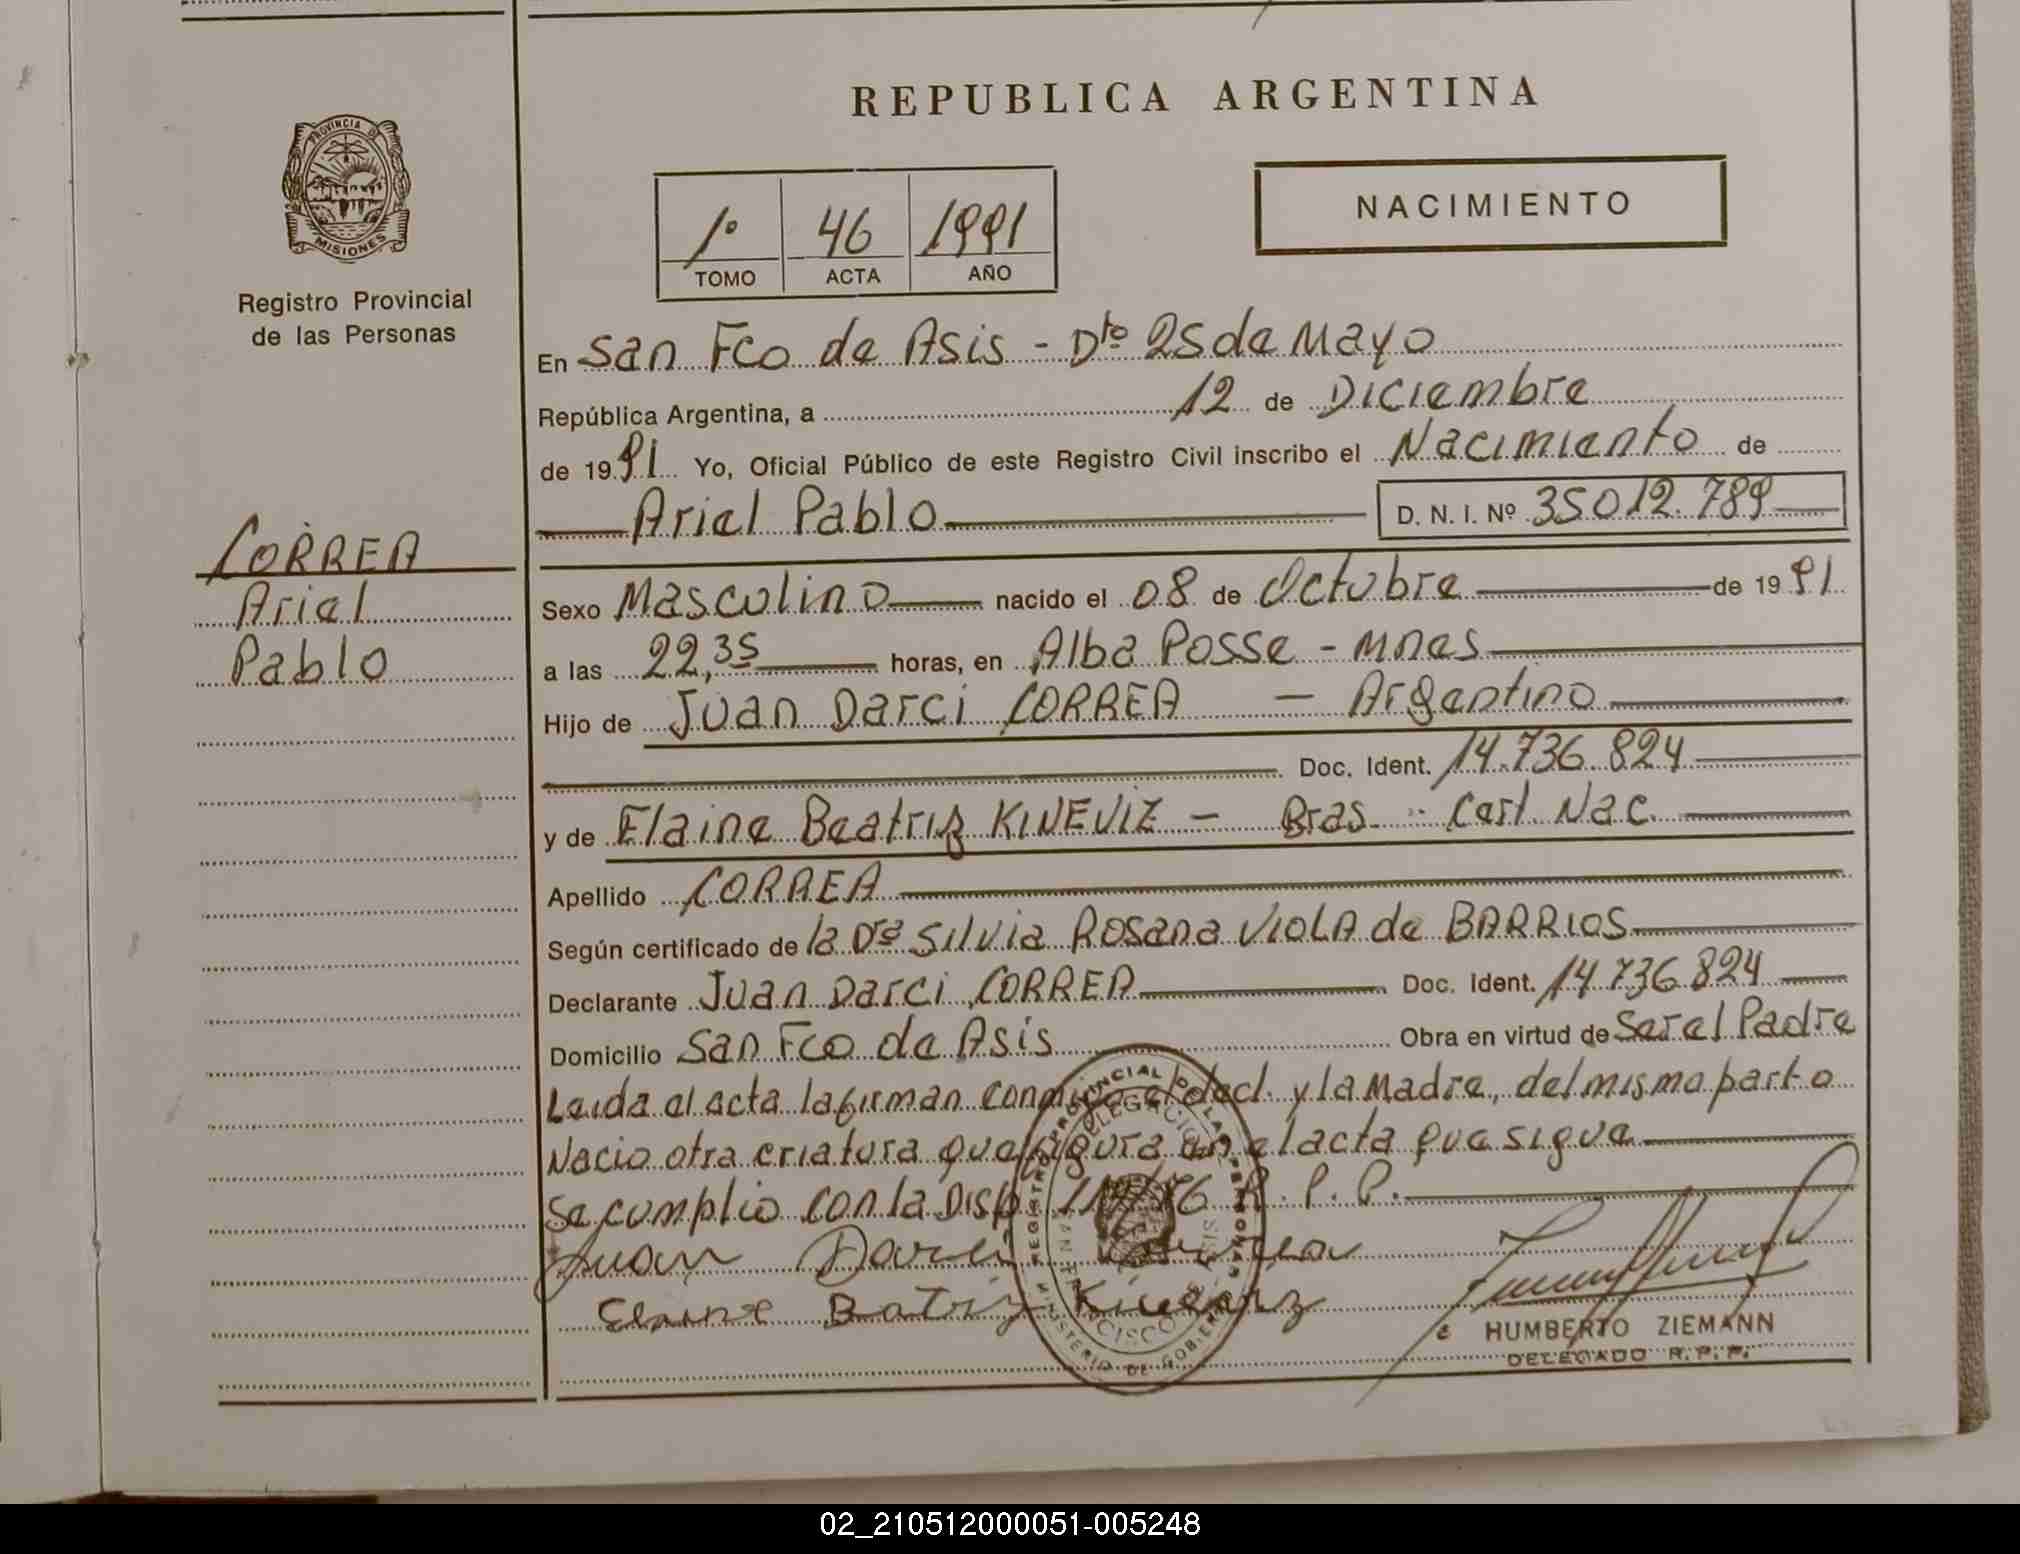 REPUBLICA ARGENTINA
PROVINCIA DE
MISIONES
Registro Provincial
de las Personas
1º 46 1991
TOMO ACTA AÑO
NACIMIENTO
En San Fco de Asis - Dto 25 de Mayo
República Argentina, a 12 de Diciembre
de 1991 Yo, Oficial Público de este Registro Civil inscribo el Nacimiento de
Ariel Pablo D. N. I. Nº 35012.789
CORREA
Ariel
Pablo
Sexo Masculino nacido el 08 de Octubre de 1991
a las 22,35 horas, en Alba Posse - Mnes
Hijo de Juan Darci CORREA - Argentino
Doc. Ident. 14.736.824
y de Elaine Beatriz KINEVIZ - Bras. Cert. Nac.
Apellido CORREA
Según certificado de la Dra Silvia Rosana VIOLA de BARRIOS
Declarante Juan Darci CORREA Doc. Ident. 14.736.824
Domicilio San Fco de Asis Obra en virtud de Ser el Padre
Leida el acta la firman conmigo el decl. y la Madre, del mismo parto
Nacio otra criatura que figura en el acta que sigue
Se cumplio con la Disp. R.P.P.
Juan Darci Correa
Elaine Batriz
REGISTRO PROVINCIAL DE LAS PERSONAS
MINISTERIO DE GOBIERNO
DELEGACION
HUMBERTO ZIEMANN
DELEGADO R.P.P.
02_210512000051-005248